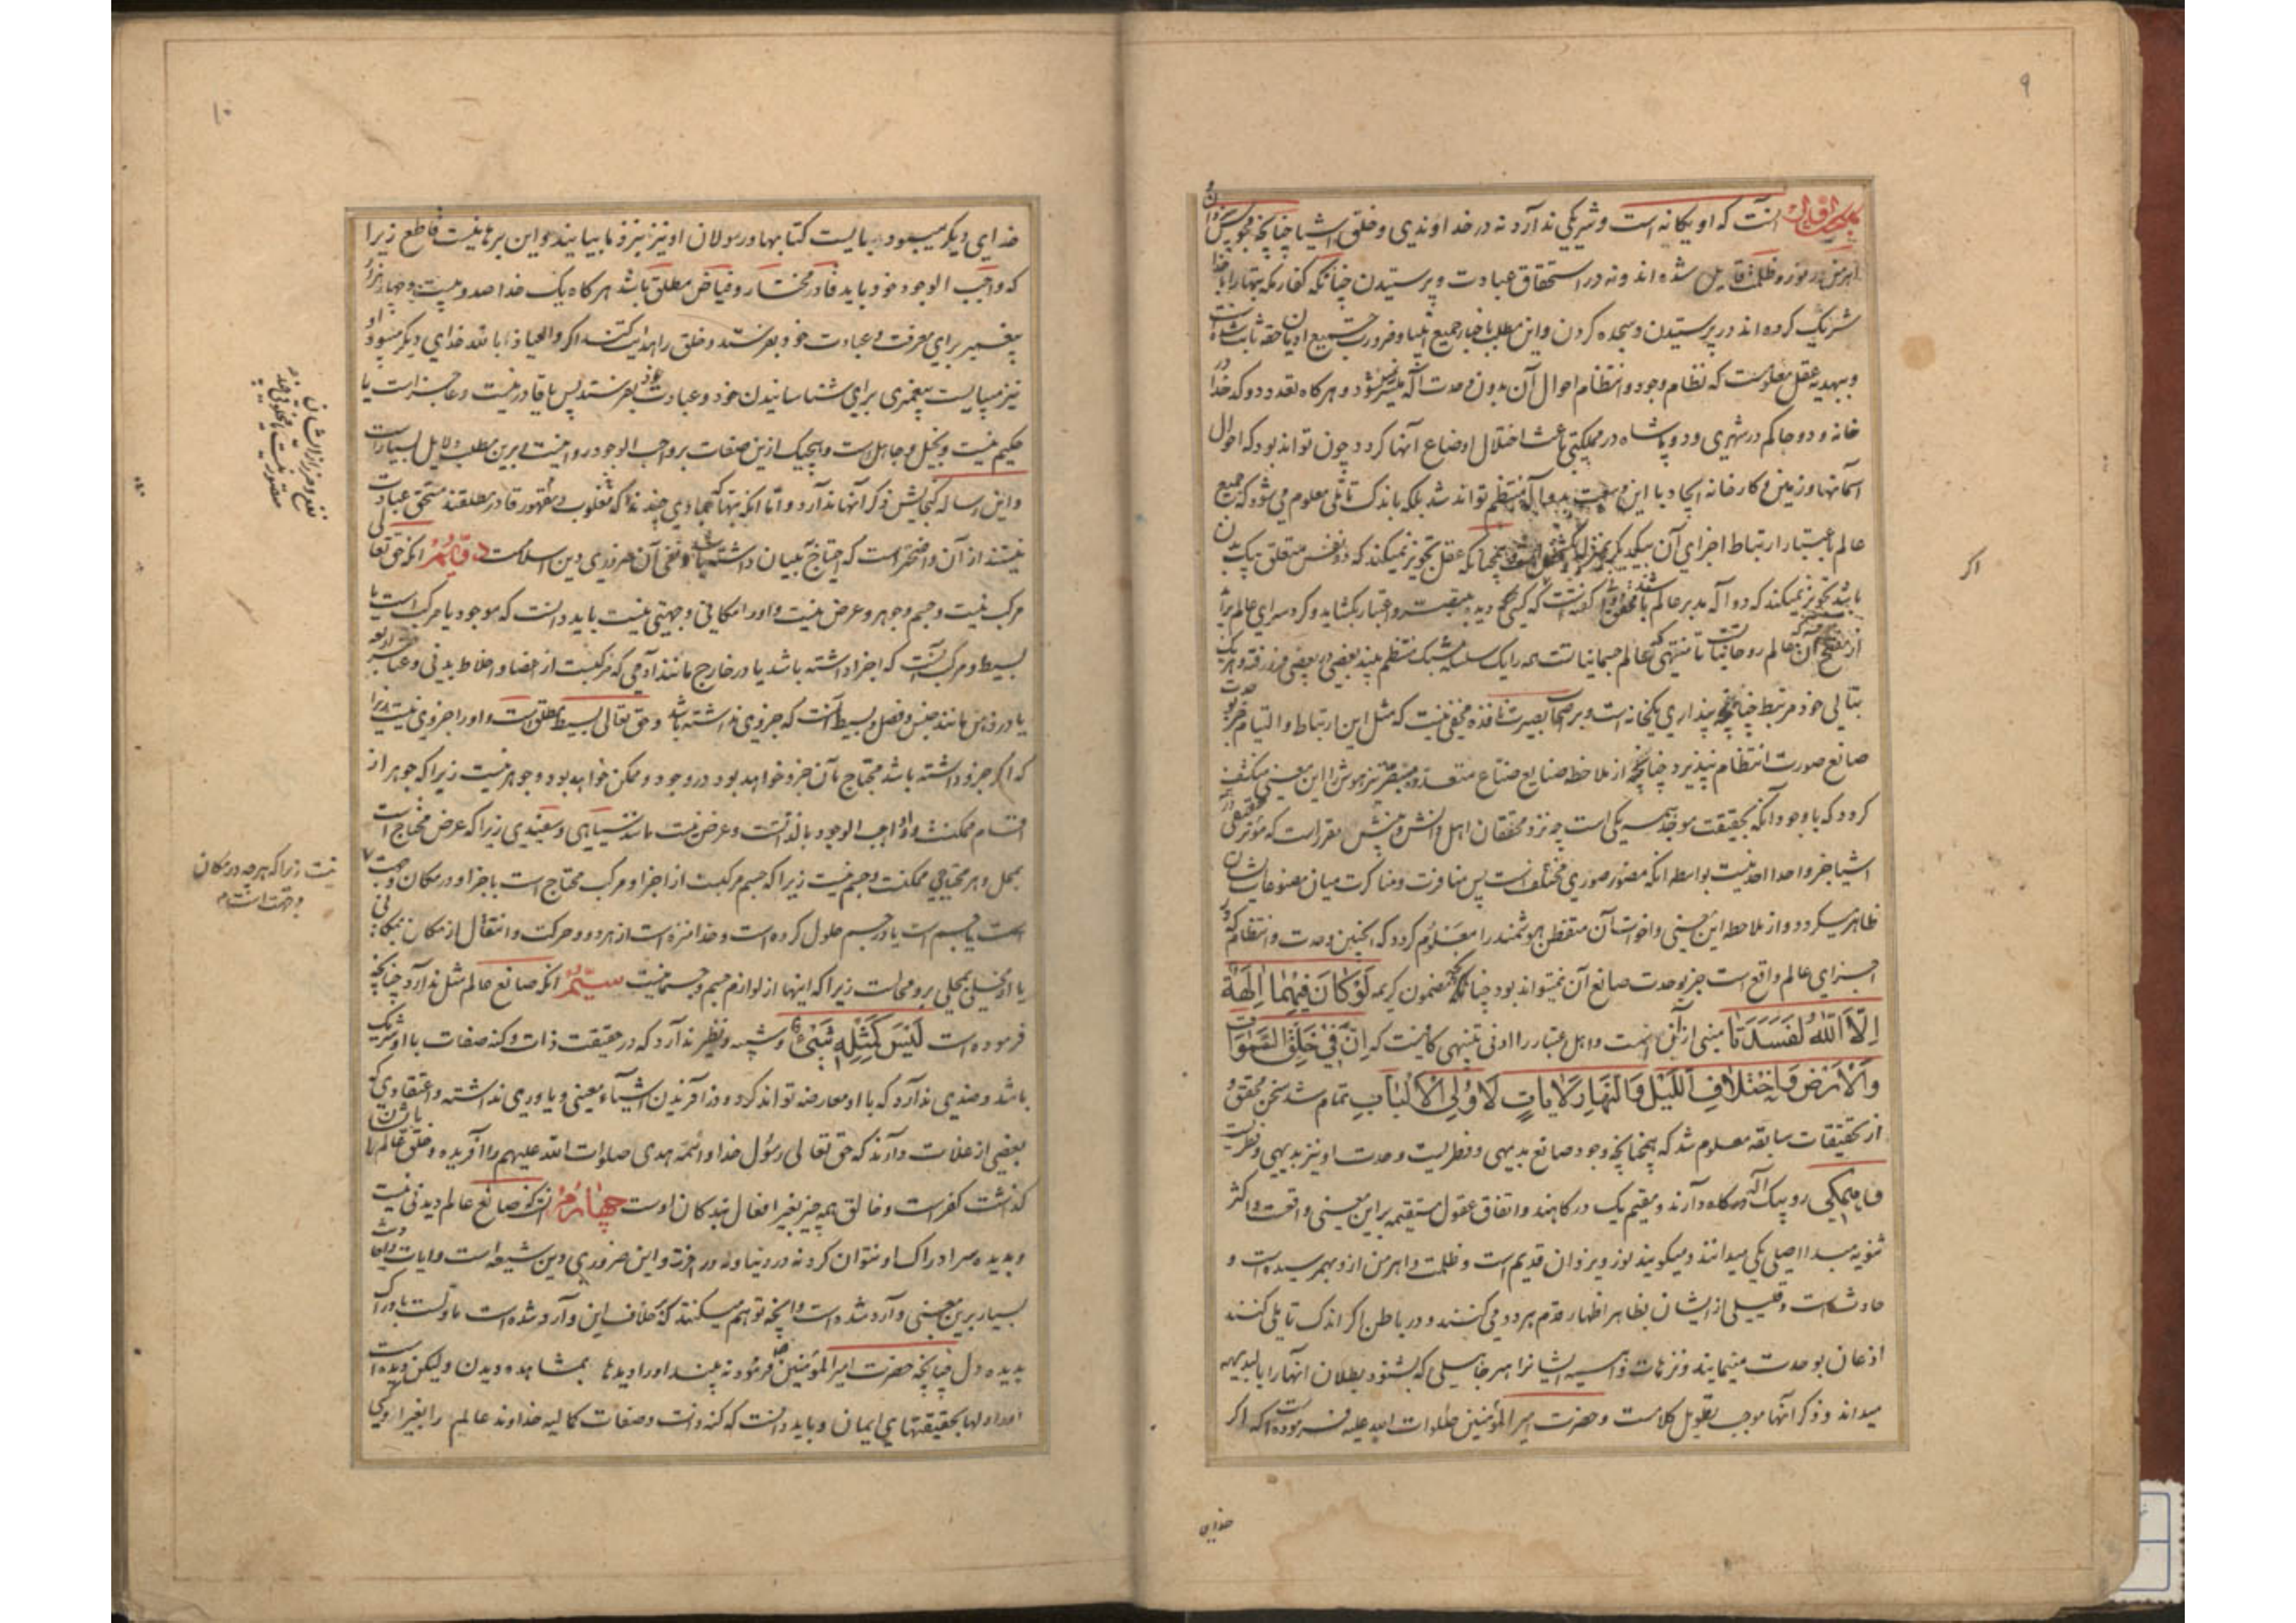 ۹
اول آنست که او یگانه است و شریکی ندارد نه در خداوندی و خلق اشیا چنانچه مجوس
اهرمن و نور و ظلمت قایل شده‌اند و نه در استحقاق عبادت و پرستیدن چنانکه کفار مکه بتها را با خدا
شریک کرده‌اند در پرستیدن و سجده کردن و این مطلب باخبار جمیع انبیا و ضرورت جمیع ادیان حقه ثابت شده است
و ببدیهه عقل معلومست که نظام وجود و انتظام احوال آن بدون وحدت اله میسر نشود و هرگاه تعدد دو کدخدا در
خانه و دو حاکم در شهری و دو پادشاه در مملکتی باعث اختلال اوضاع آنها گردد چون تواند بود که احوال
آسمانها و زمین و کارخانه ایجاد با این وسعت بدو اله منتظم تواند شد بلکه باندک تاملی معلوم می‌شود که جمیع
عالم باعتبار ارتباط اجزای آن بیکدیگر بمنزله یک شخص است و همچنانکه عقل تجویز نمیکند که دو نفس متعلق بیک بدن
باشد تجویز نمیکند که دو اله مدبر عالم باشند محقق دوانی گفته است که کسی که دیده بصیرت و اعتبار بگشاید و گرد سرای عالم برآید
از مفتح آن که عالم روحانیاتست تا منتهی که عالم جسمانیاتست همه را یک سلسله مشبک منتظم بیند بعضی در بعضی فرو رفته و هر یک
بتالی خود مرتبط چنانچه پنداری یکخانه است و بر اصحاب بصیرت نافذه مخفی نیست که مثل این ارتباط و التیام جز بوحدت
صانع صورت انتظام نپذیرد چنانچه از ملاحظه صنایع صناع متعدده متبصر تیزهوش را این معنی منکشف
گردد که با وجود آنکه بحقیقت موجد همه یکی است چه نزد محققان اهل دانش و بینش مقرر است که موثر حقیقی در
اشیا جز واحد احد نیست بواسطه انکه مصور صوری مختلف است پس منافرت و مناکرت میان مصنوعات ایشان
ظاهر میگردد و از ملاحظه این معنی و اخوات آن متفطن هوشمند را معلوم گردد که اینچنین وحدت و انتظام که در
اجزای عالم واقع است جز بوحدت صانع آن نمیتواند بود چنانکه مضمون کریمه لَوْ کانَ فِیهِما آلِهَةٌ
اِلّا اللهُ لَفَسَدَتا مبنی از آنست و اهل اعتبار را ادنی تنبیهی کافیست که اِنَّ فی خَلْقِ السَّمواتِ
وَالْاَرْضِ وَاخْتِلافِ اللَّیْلِ وَالنَّهارِ لَآیاتٍ لِاُولِی الْاَلْبابِ تمام شد سخن محقق و
از تحقیقات سابقه معلوم شد که همچنانچه وجود صانع بدیهی و فطریست وحدت او نیز بدیهی و فطریست
و همگی رو بیک درگاه دارند و مقیم یک درگاهند و اتفاق عقول مستقیمه بر این معنی واقعست و اکثر
ثنویه مبدا اصلی یکی میدانند و میگویند نور و یزدان قدیم است و ظلمت و اهرمن ازو بهمرسیده است و
حادثست و قلیلی از ایشان بظاهر اظهار قدم هر دو می‌کنند و در باطن اگر اندک تاملی کنند
اذعان بوحدت مینمایند و نزهات واهیه ایشانرا هر جاهلی که بشنود بطلان انها را بالبدیهه
میداند و ذکر آنها موجب تطویل کلامست و حضرت امیر المؤمنین صلوات الله علیه فرموده است که اگر
اگر
خدای
۱۰
خدای دیگر میبود میبایست کتابها و رسولان او نیز بنزد ما بیایند و این برهانیست قاطع زیرا
که واجب الوجود خود باید قادر مختار و فیاض مطلق باشد هرگاه یک خدا صد و بیست و چهار هزار
پیغمبر برای معرفت و عبادت خود بفرستد و خلق را هدایت کند اگر والعیاذ بالله خدای دیگر میبود او
نیز میبایست پیغمبری برای شناسانیدن خود و عبادت خود بفرستد پس یا قادر نیست و عاجز است یا
حکیم نیست و بخیل و جاهل است و هیچیک ازین صفات بر واجب الوجود روا نیست و برین مطلب دلایل بسیار است
و این رساله گنجایش ذکر آنها ندارد و اما انکه بتها و جمادی چند که مغلوب و مقهور قادر مطلقند مستحق عبادت
نیستند از آن واضحتر است که احتیاج به بیان داشته باشد و نفی آن ضروری دین اسلامست دویم انکه حق تعالی
مرکب نیست و جسم و جوهر و عرض نیست و او را مکانی و جهتی نیست باید دانست که موجود یا مرکب است یا
بسیط و مرکب آنست که اجزا داشته باشد یا در خارج مانند آدمی که مرکبست از اعضا و اخلاط بدنی و عناصر اربعه
یا در ذهن مانند جنس و فصل و بسیط آنست که جزوی نداشته باشد و حق تعالی بسیط مطلق است و او را جزوی نیست زیرا
که اگر جزو داشته باشد محتاج بآن جزو خواهد بود در وجود و ممکن خواهد بود و جوهر نیست زیرا که جوهر از
اقسام ممکنست و او واجب الوجود بالذاتست و عرض نیست مانند سیاهی و سفیدی زیرا که عرض محتاج است
بمحل و هر محتاجی ممکنست و جسم نیست زیرا که جسم مرکبست از اجزا و مرکب محتاج است باجزا و در مکان و جهت
است یا جسم است یا در جسم حلول کرده است و خدا منزه است از هر دو و حرکت و انتقال از مکان بمکانی
یا از محلی بمحلی برو محالست زیرا که اینها از لوازم جسم و جسمانیست سیم انکه صانع عالم مثل ندارد چنانچه
فرموده است لَیْسَ کَمِثْلِهِ شَیْءٌ و شبیه و نظیر ندارد که در حقیقت ذات و کنه صفات با او شریک
باشد و ضدی ندارد که با او معارضه تواند کرد و در آفریدن اشیاء معینی و یاوری نداشته و اعتقادی که
بعضی از غلات دارند که حق تعالی رسول خدا و ائمه هدی صلوات الله علیهم را آفریده و خلق عالم را بایشان
گذاشت کفر است و خالق همه چیز بغیر افعال بندگان اوست چهارم آنکه صانع عالم دیدنی نیست
و بدیده سر ادراک او نتوان کرد نه در دنیا و نه در آخرت و این ضروری دین شیعه است و آیات و احادیث
بسیار برین معنی وارد شده است و آنچه توهم میکنند که خلاف این وارد شده است ماولست بادراک
بدیده دل چنانچه حضرت امیر المؤمنین فرمود نه بیند او را دیدها بمشاهده دیدن ولیکن دیده است
او را دلها بحقیقتهای ایمان و باید دانست که کنه ذات و صفات کمالیه خداوند عالم را بغیر از وی
نیست زیرا که هر چه در مکان
و جهت است